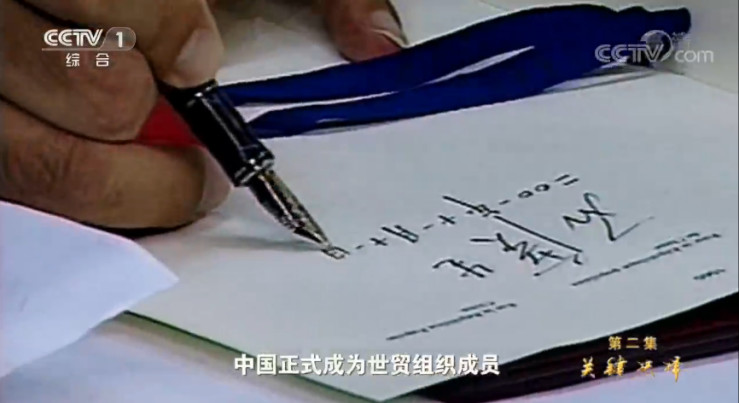 CCTV 1
综合
CCTV.com
二00一年十一月十一日
中国正式成为世贸组织成员
第二集
关键抉择